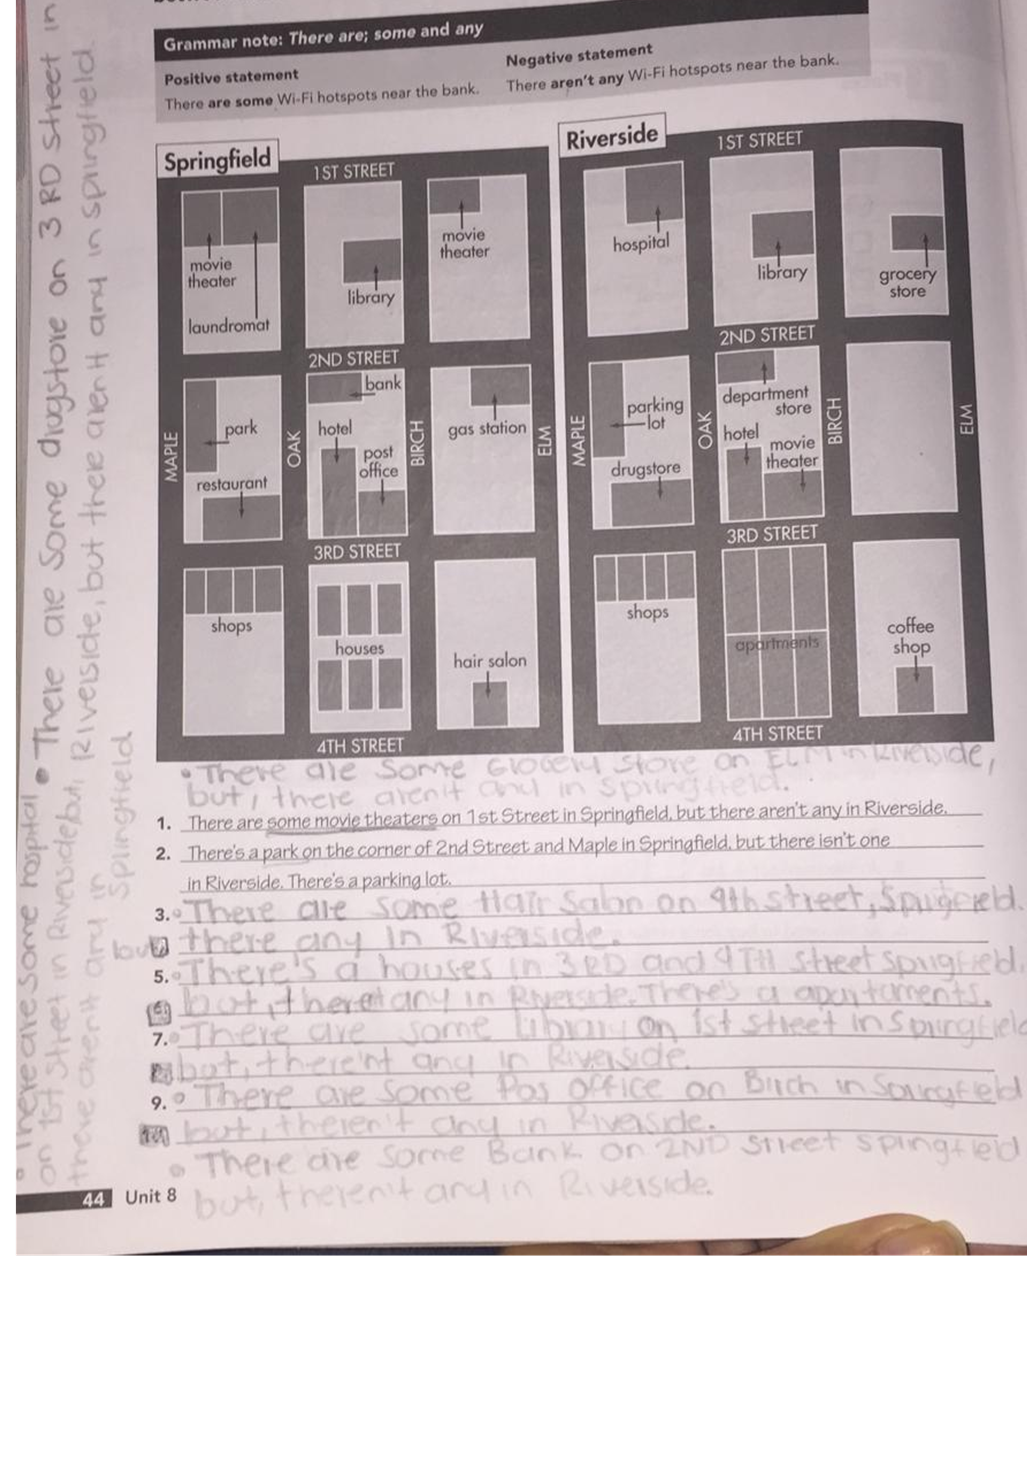 Grammar note: There are; some and any
Positive statement
There are some Wi-Fi hotspots near the bank.
Negative statement
There aren't any Wi-Fi hotspots near the bank.
Springfield
1ST STREET
movie
theater
laundromat
library
movie
theater
2ND STREET
MAPLE
park
restaurant
OAK
bank
hotel
post
office
BIRCH
gas station
ELM
3RD STREET
shops
houses
hair salon
4TH STREET
Riverside
1ST STREET
hospital
library
grocery
store
2ND STREET
MAPLE
parking
lot
drugstore
OAK
department
store
hotel
movie
theater
BIRCH
ELM
3RD STREET
shops
apartments
coffee
shop
4TH STREET
• There are some Grocery store on ELM in Riverside,
but, there aren't and in Springfield.
1. There are some movie theaters on 1st Street in Springfield, but there aren't any in Riverside.
2. There's a park on the corner of 2nd Street and Maple in Springfield, but there isn't one
in Riverside. There's a parking lot.
3. There are some Hair Salon on 4th street,
but there any in Riverside.
5. There's a houses in 3RD and 4TH street
but, any in Riverside. There's a
7. There are some Library on 1st street in
but, there'nt any in Riverside.
9. There are some Pos office on Birch in
but, theren't any in Riverside.
There are some Bank on 2ND street
but, theren't any in Riverside.
44 Unit 8
• There are some hospital
on 1st street in Riverside but,
there arent any in
Springfield
• There are some drugstore on 3RD street in
Riverside, but there arent any in springfield.